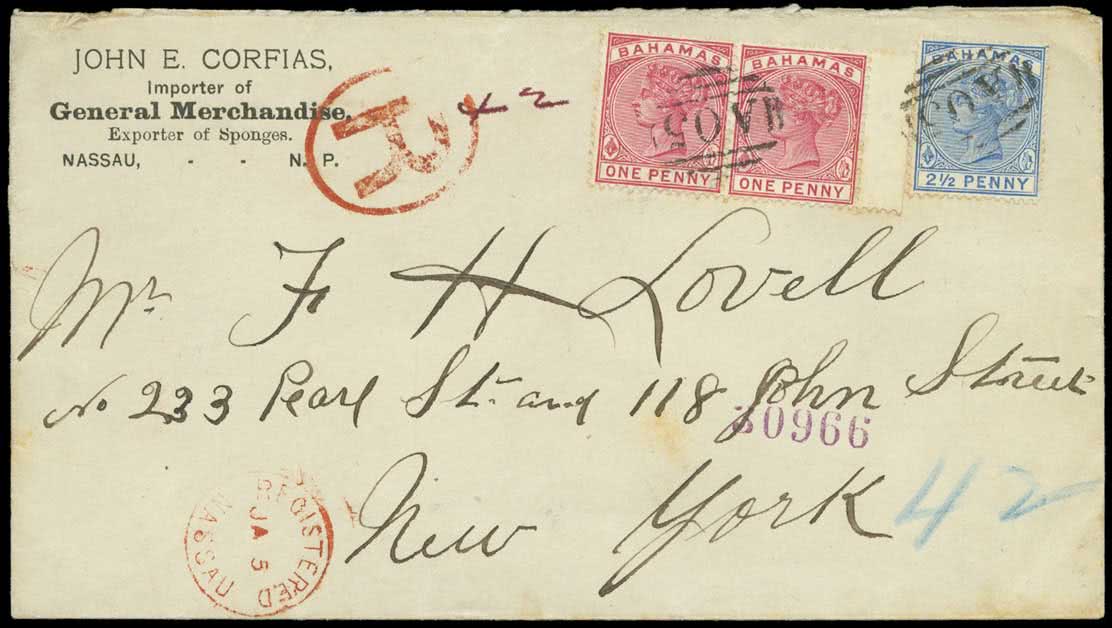 JOHN E. CORFIAS,
Importer of
General Merchandise.
Exporter of Sponges.
NASSAU, - - N. P.
R
42
BAHAMAS
ONE PENNY
BAHAMAS
ONE PENNY
A05
BAHAMAS
2½ PENNY
A05
Mr. F H Lovell
No 233 Pearl St. and 118 John Street
30966
New York
42
REGISTERED
JA 5
NASSAU